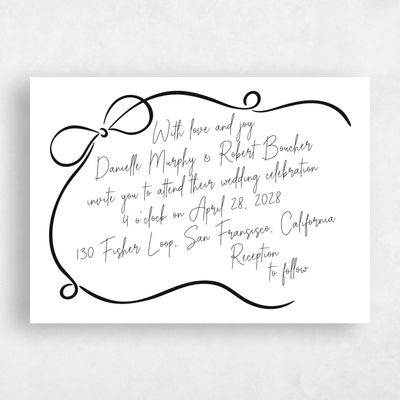 With love and joy
Danielle Murphy & Robert Boucher
invite you to attend their wedding celebration
4 o'clock on April 28, 2028
130 Fisher Loop, San Fransisco, California
Reception
to follow